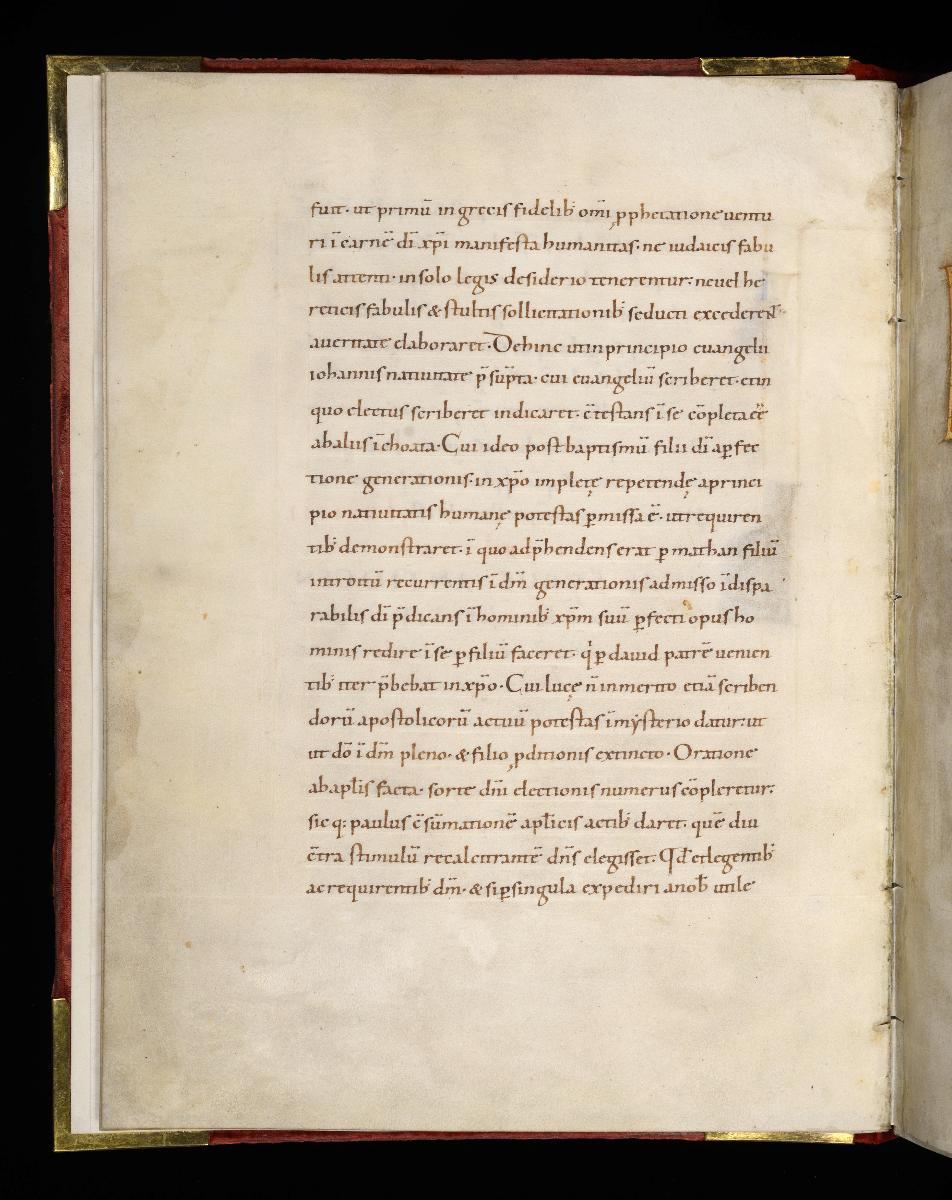 fuit· ut primū in grecis fidelib' om̄i ꝓphetatione uentu
ri ī carnē dī xp̄i manifesta humanitas· ne iudaicis fabu
lis attenti· in solo legis desiderio tenerentur· neuel he
reticis fabulis & stultis sollicitationib' seducti excederent·
aueritate elaboraret· Dehinc utinprincipio euangelii
iohannis natiuitate p̄sūpta· cui euangeliū scriberet· etin
quo electus scriberet indicaret· c̄testans ī se cōpleta eē
abaliis īchoata· Cui ideo post baptismū filii dī aꝑfec
tione generationis· in xp̄o implete repetendę aprinci
pio natiuitatis humanę potestas ꝑmissa ē· utrequiren
tib' demonstraret· ī quo adp̄hendens erat ꝑ mathan filiū
introitū recurrentis ī dm̄ generationis admisso īdispa
rabilis dī p̄dicans ī hominib' xp̄m suū ꝑfecti opus ho
minis redire ī se ꝑ filiū faceret· qͥ ꝑ dauid patrē uenien
tib' iter p̄bebat in xp̄o· Cui lucę n̄ inmerito etiā scriben
dorū apostolicorū actuū potestas ī mẏsterio datur· ut
ut dō ī dm̄ pleno· & filio ꝓditionis extincto· Oratione
ab apłis facta· sorte dn̄i electionis numerus cōpleretur·
sic q; paulus c̄sūmationē apłicis actib' daret· quē diu
c̄tra stimulū recalcitrantē dn̄s elegisset· Qđ etlegentib'
ac requirentib' dm̄· & si ꝑ singula expediri anoƀ utile